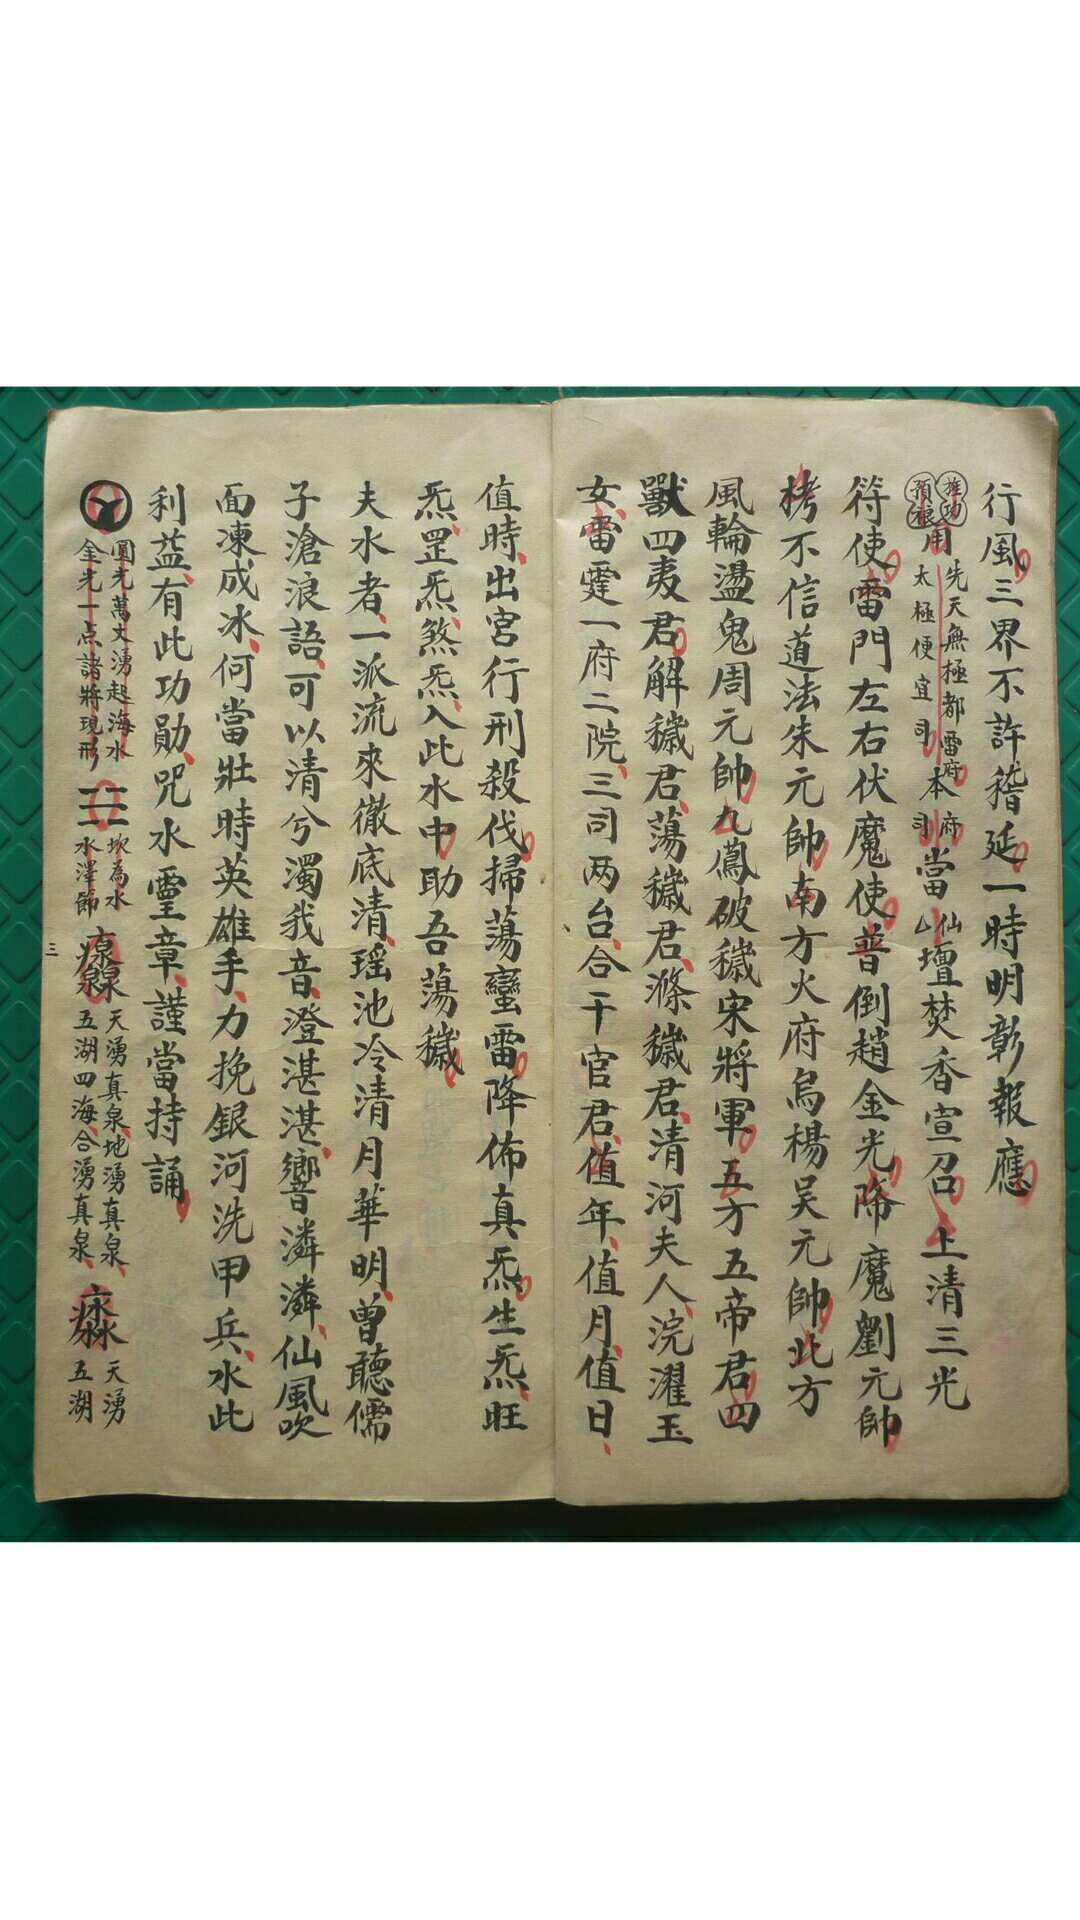 行風三界不許稽延一時明彰報應
預禳
用先天無極都雷府
太極便宜司
本府
司當仙
壇焚香宣召上清三光
符使雷門左右伏魔使普倒趙金光降魔劉元帥
栲不信道法朱元帥南方火府烏楊吴元帥北方
風輪盪鬼周元帥九鳳破穢宋將軍五方五帝君四
獸四夷君解穢君蕩穢君滌穢君清河夫人浣濯玉
女雷霆一府二院三司两台合干官君值年值月值日
值時出宮行刑殺伐掃蕩蠻雷降佈真炁生炁旺
炁罡炁煞炁入此水中助吾蕩穢
夫水者一派流來徹底清瑶池冷清月華明曾聽儒
子滄浪語可以清兮濁我音澄湛湛響潾潾仙風吹
面凍成冰何當壯時英雄手力挽銀河洗甲兵水此
利益有此功勛咒水靈章謹當持誦
圓光萬丈湧起海水
金光一点諸將現形
坎為水
水澤節
天湧真泉地湧真泉
五湖四海合湧真泉
天湧
五湖
三